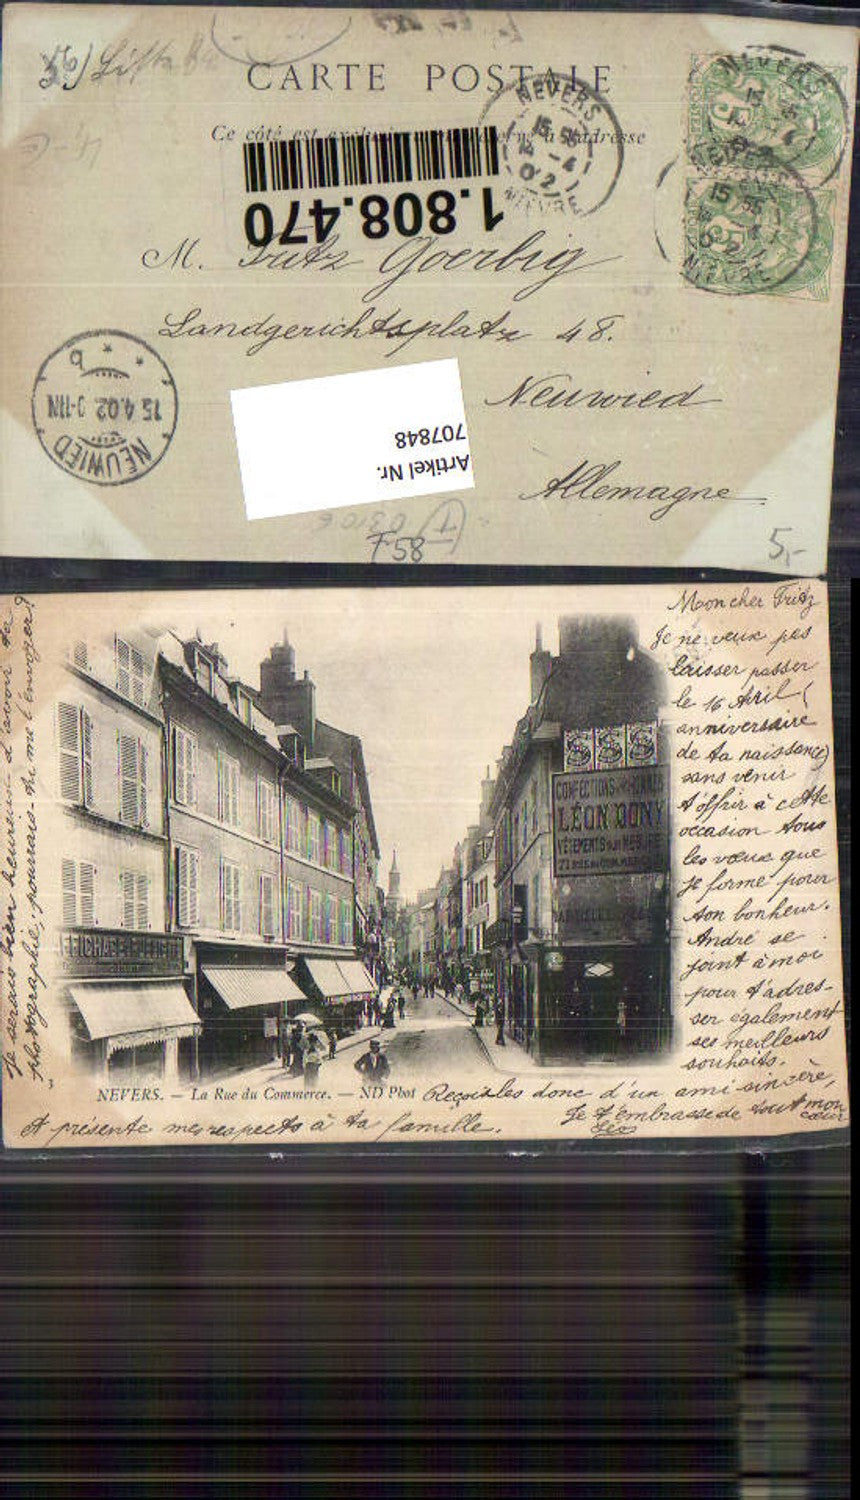 CARTE POSTALE
Ce côté est adresse
1.808.470
M. Fritz Goerbig
Landgerichtsplatz 48.
Neuwied
Allemagne
Artikel Nr.
707848
F 58
5,-
NEVERS
15
14 -4
02
NIEVRE
NEVERS
NEVERS
15
NIEVRE
NEUWIED
15.4.02 9-11N
* * b
Mon cher Fritz
Je ne veux pas
laisser passer
le 16 Avril (
anniversaire
de ta naissance)
sans venir
t'offrir à cette
occasion tous
les vœux que
je forme pour
ton bonheur.
André se
joint à moi
pour t'adres-
ser également
ses meilleurs
souhaits.
Reçois les donc d'un ami sincère,
Je t'embrasse de tout mon
cœur
Léo
et présente mes respects à ta famille.
Je serais bien heureux d'avoir ta
photographie, pourrais-tu me l'envoyer?
CONFECTIONS POUR HOMMES
LÉON DONY
VÊTEMENTS SUR MESURE
NEVERS. — La Rue du Commerce. — ND Phot